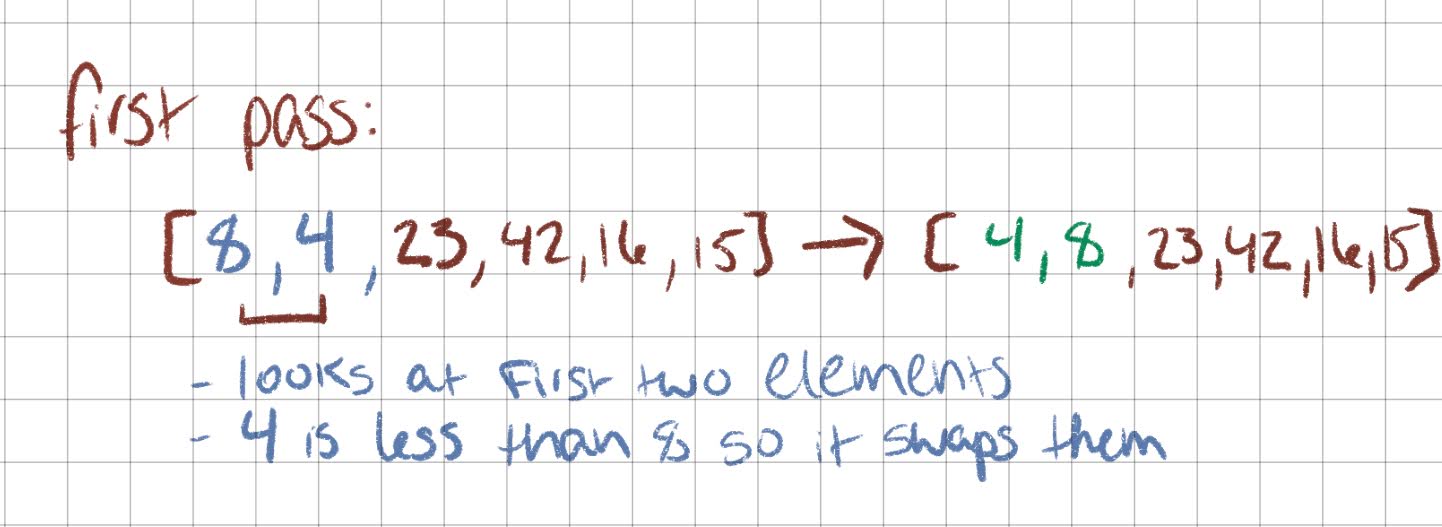 first pass:
[8, 4, 23, 42, 16, 15] → [4, 8, 23, 42, 16, 15]
- looks at First two elements
- 4 is less than 8 so it swaps them